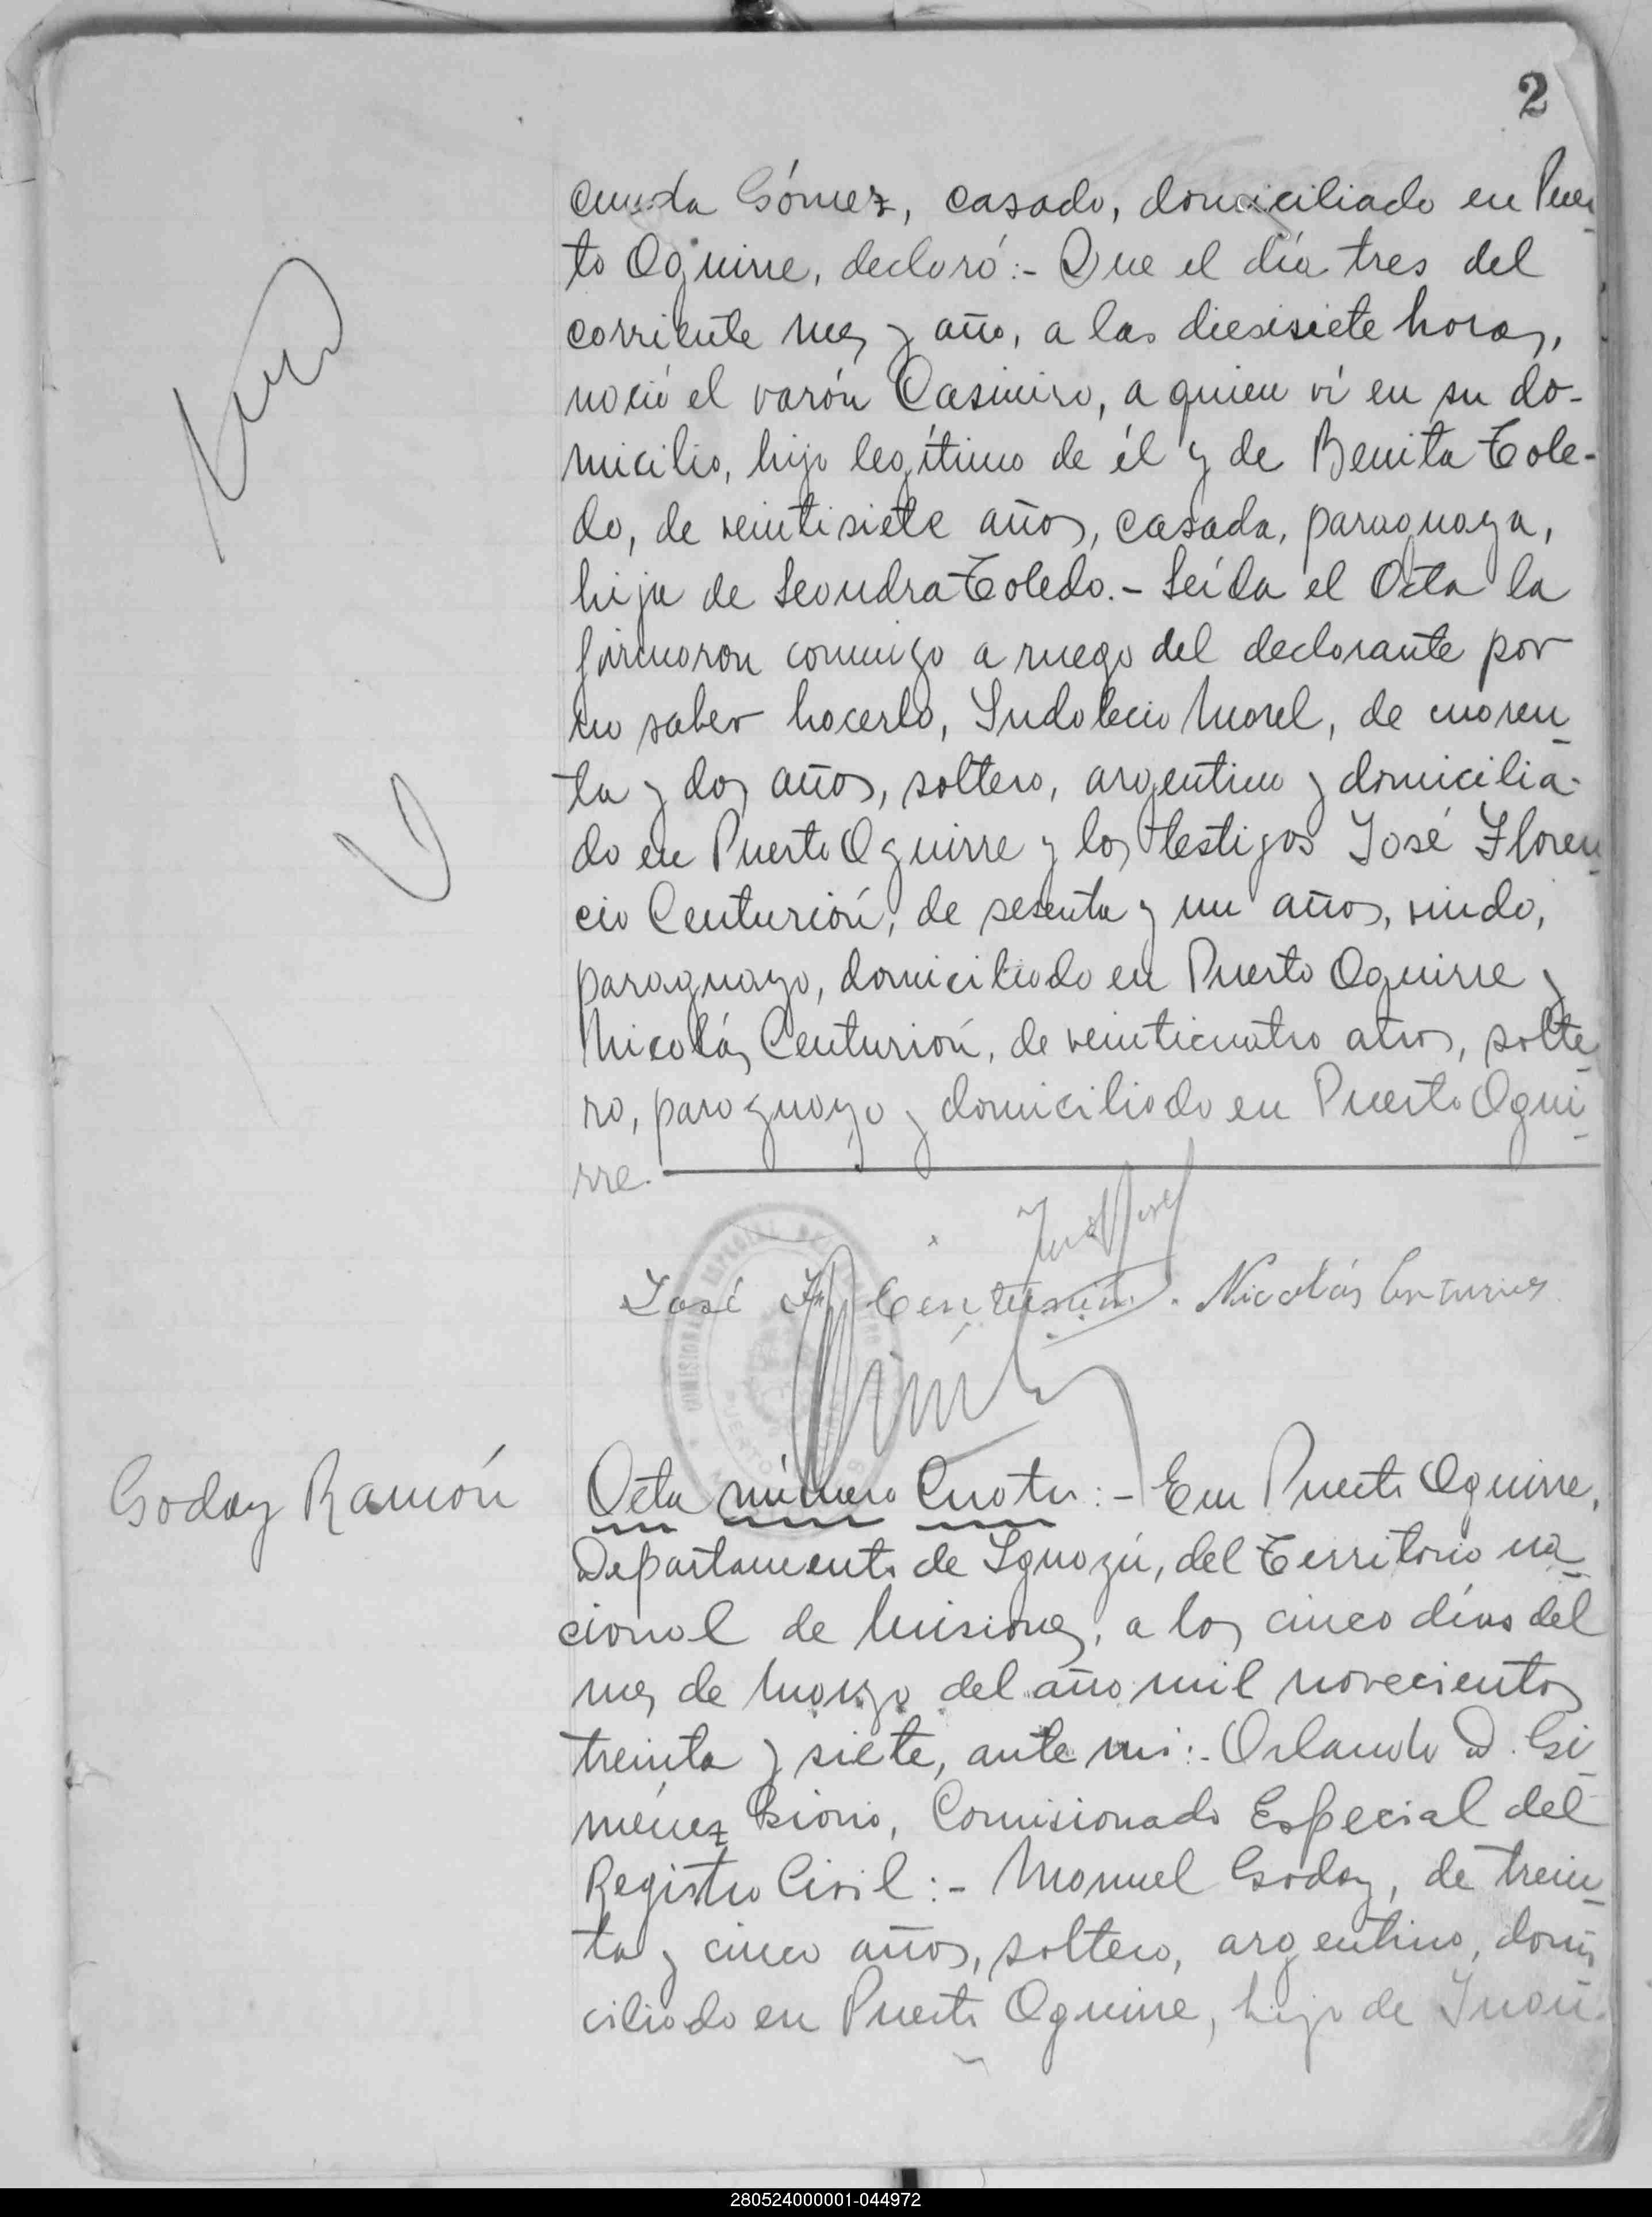 2
cunda Gómez, casado, domiciliado en Puer
to Aguirre, declaró:- Que el día tres del
corriente mes y año, a las diesisiete horas,
nació el varón Casimiro, a quien ví en su do-
micilio, hijo legítimo de él y de Benita Tole-
do, de veintisiete años, casada, paraguaya,
hija de Leandra Toledo.- Leída el Acta la
firmaron conmigo a ruego del declarante por
no saber hacerlo, Indalecio Morel, de cuaren
ta y dos años, soltero, argentino y domicilia-
do en Puerto Aguirre y los testigos José Floren
cio Centurión, de sesenta y un años, viudo,
paraguayo, domiciliado en Puerto Aguirre y
Nicolás Centurión, de veinticuatro años, solte
ro, paraguayo y domiciliado en Puerto Agui
rre.-
José F. Centurión. Nicolás Centurión
Godoy Ramón
Acta número Cuatro:- En Puerto Aguirre,
Departamento de Iguazú, del Territorio na
cional de Misiones, a los cinco días del
mes de Marzo del año mil novecientos
treinta y siete, ante mi:- Orlando D. Gi
ménez, Comisionado Especial del
Registro Civil:- Manuel Godoy, de trein
ta y cinco años, soltero, argentino, domi
ciliado en Puerto Aguirre, hijo de Juan
280524000001-044972